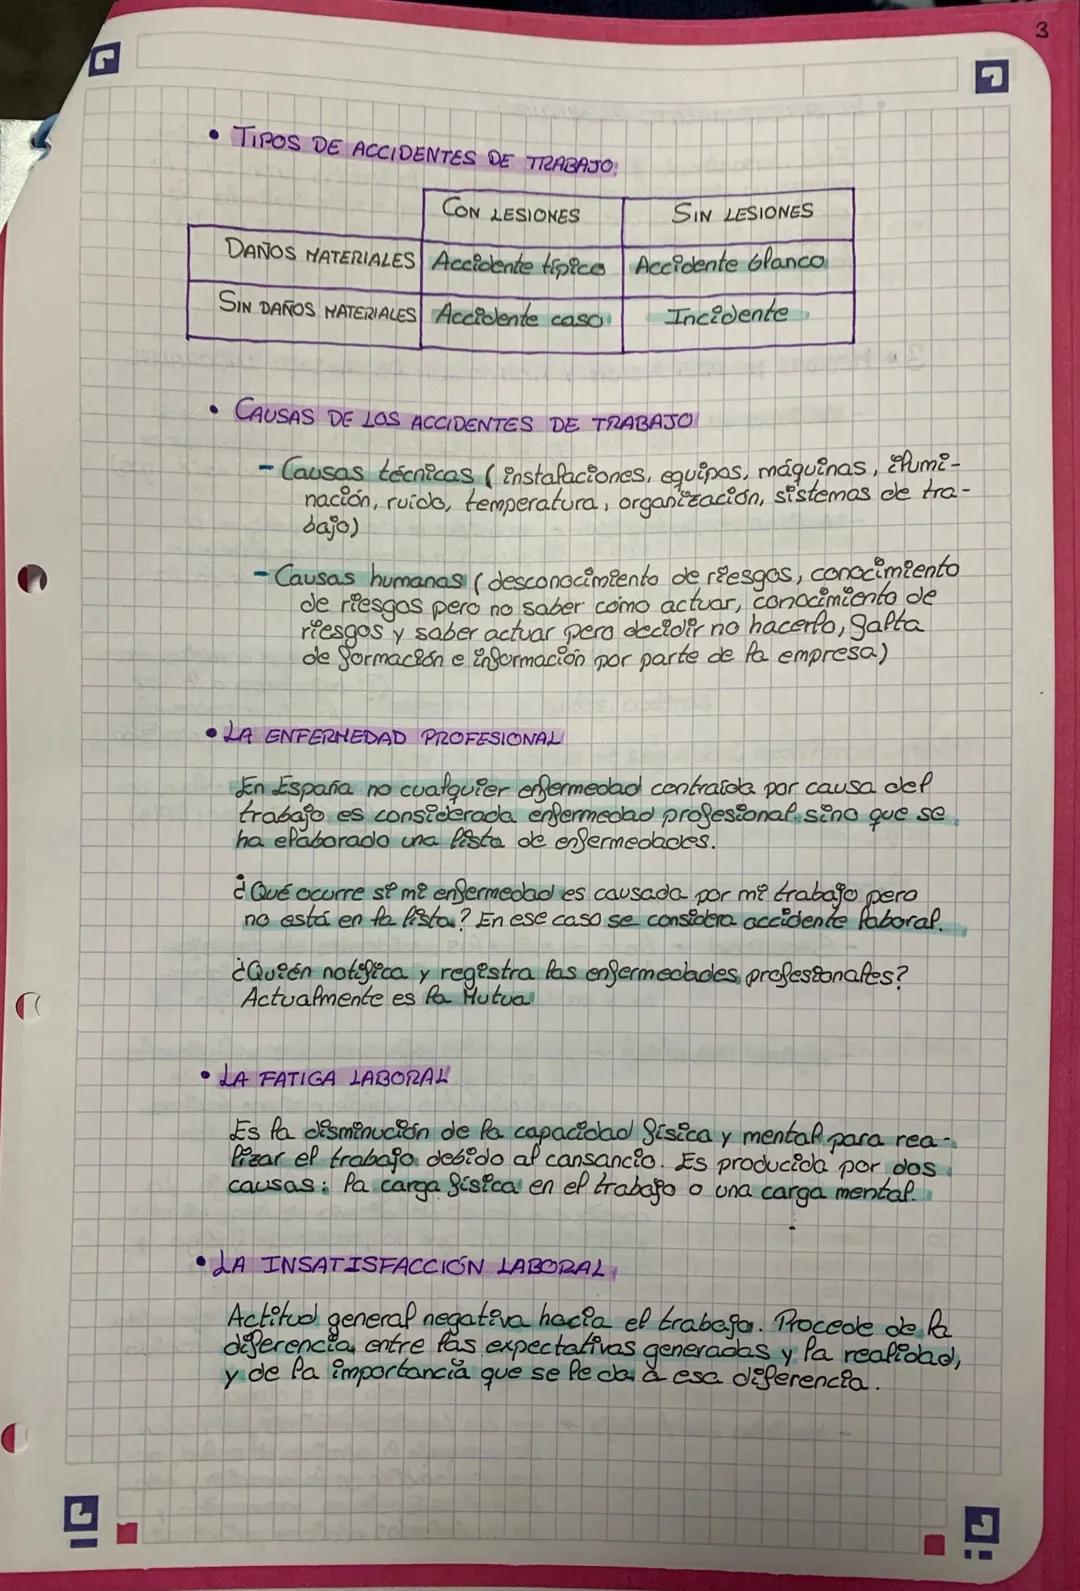 3
• TIPOS DE ACCIDENTES DE TRABAJO:
CON LESIONES SIN LESIONES
DAÑOS MATERIALES Accidente típico Accidente blanco
SIN DAÑOS MATERIALES Accidente caso Incidente
• CAUSAS DE LOS ACCIDENTES DE TRABAJO
- Causas técnicas (instalaciones, equipos, máquinas, ilumi-
nación, ruido, temperatura, organización, sistemas de tra-
bajo)
- Causas humanas (desconocimiento de riesgos, conocimiento
de riesgos pero no saber cómo actuar, conocimiento de
riesgos y saber actuar pero decidir no hacerlo, falta
de formación e información por parte de la empresa)
• LA ENFERMEDAD PROFESIONAL
En España no cualquier enfermedad contraída por causa del
trabajo es considerada enfermedad profesional sino que se
ha elaborado una lista de enfermedades.
¿Qué ocurre si mi enfermedad es causada por mi trabajo pero
no está en la lista? En ese caso se considera accidente laboral.
¿Quién notifica y registra las enfermedades profesionales?
Actualmente es la Mutua
• LA FATIGA LABORAL
Es la disminución de la capacidad física y mental para rea-
lizar el trabajo debido al cansancio. Es producida por dos
causas: la carga física en el trabajo o una carga mental.
• LA INSATISFACCIÓN LABORAL
Actitud general negativa hacia el trabajo. Procede de la
diferencia entre las expectativas generadas y la realidad,
y de la importancia que se le da a esa diferencia.